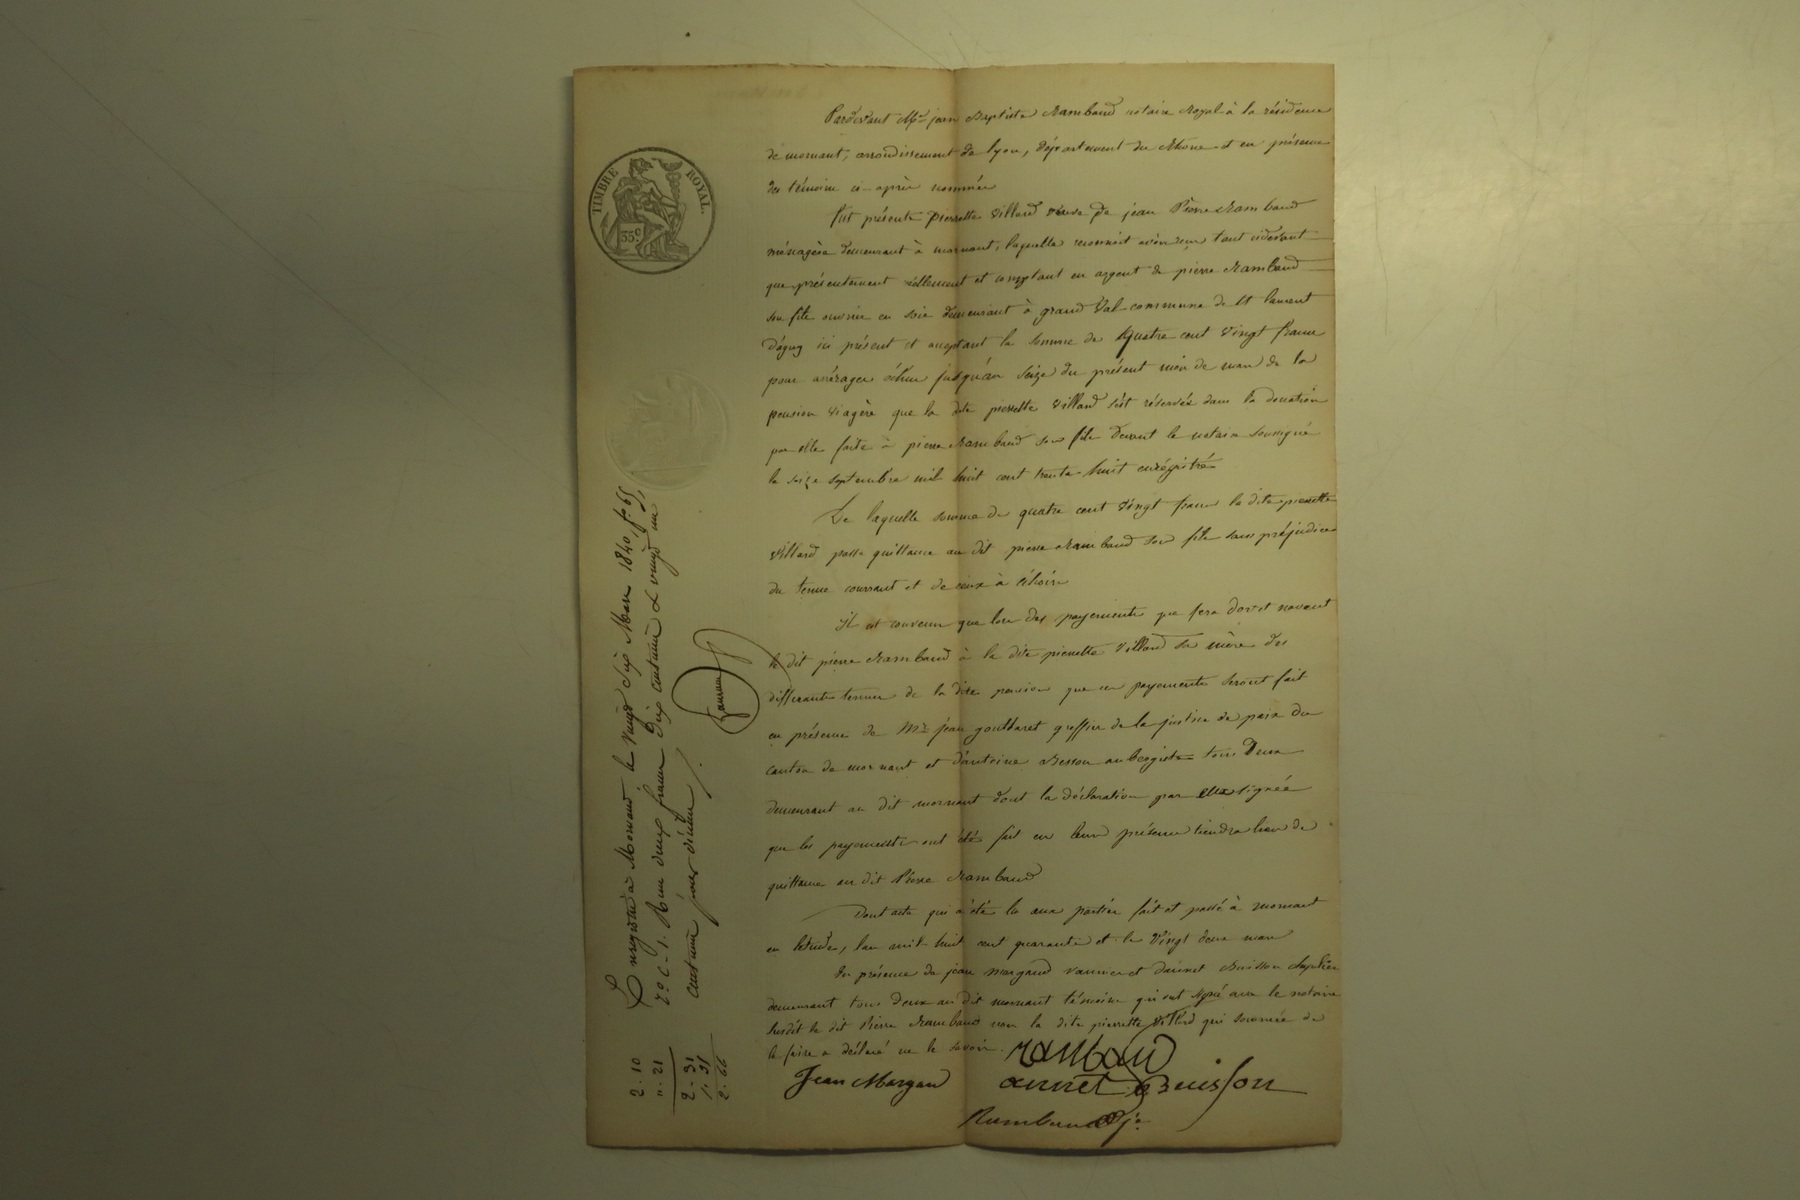 TIMBRE ROYAL.
35 c.
Pardevant Me jean Baptiste Rambaud notaire Royal à la résidence
de mornant, arrondissement de lyon, département du Rhône et en présence
des témoins ci-après nommés
fut présente pierrette Villard veuve de jean Pierre Rambaud
ménagère demeurant à mornant, laquelle reconnait avoir reçu tant cidevant
que présentement réellement et comptant en argent de pierre Rambaud
son fils ouvrier en soie demeurant à grand Val commune de St laurent
D'agny ici présent et acceptant la somme de quatre cent vingt francs
pour arrérages échus jusqu'au seize du présent mois de mars de la
pension viagère que la dite pierrette Villard s'est réservée dans la donation
par elle faite à pierre Rambaud son fils devant le notaire soussigné
le seize septembre mil huit cent trente-huit enrégistrée
De laquelle somme de quatre cent vingt francs la dite pierrette
Villard passe quittance au dit pierre Rambaud son fils sans préjudice
du terme courrant et de ceux à échoir
Il est convenu que lors des payements que fera dorét navant
le dit pierre Rambaud à la dite pierrette Villard sa mère des
différents termes de la dite pension que ces payements seront fait
en présence de Mr jean goutbaret greffier de la justice de paix du
canton de mornant et d'antoine Besson aubergiste tous deux
demeurant au dit mornant dont la déclaration par eux signée
que les payements ont été fait en leur présence tiendra lieu de
quittance au dit Pierre Rambaud
Dont acte qui a été lu aux parties fait et passé à mornant
en l'étude, l'an mil huit cent quarante et le vingt deux mars
En présence de jean margand vannier et d'annet Buisson
demeurant tous deux au dit mornant témoins qui ont signé avec le notaire
susdit le dit Pierre Rambaud non la dite pierrette Villard qui sommée de
le faire a déclaré ne le savoir.
Rambaud
Jean Margan annet Buisson
Rambaud je
Enregistré à Mornant le vingt six Mars 1840, fo 65
Vo C. 1. Reçu deux francs dix centimes & vingt un
centimes pour dixième
2. 10
". 21
2 - 31
". 35
2. 66